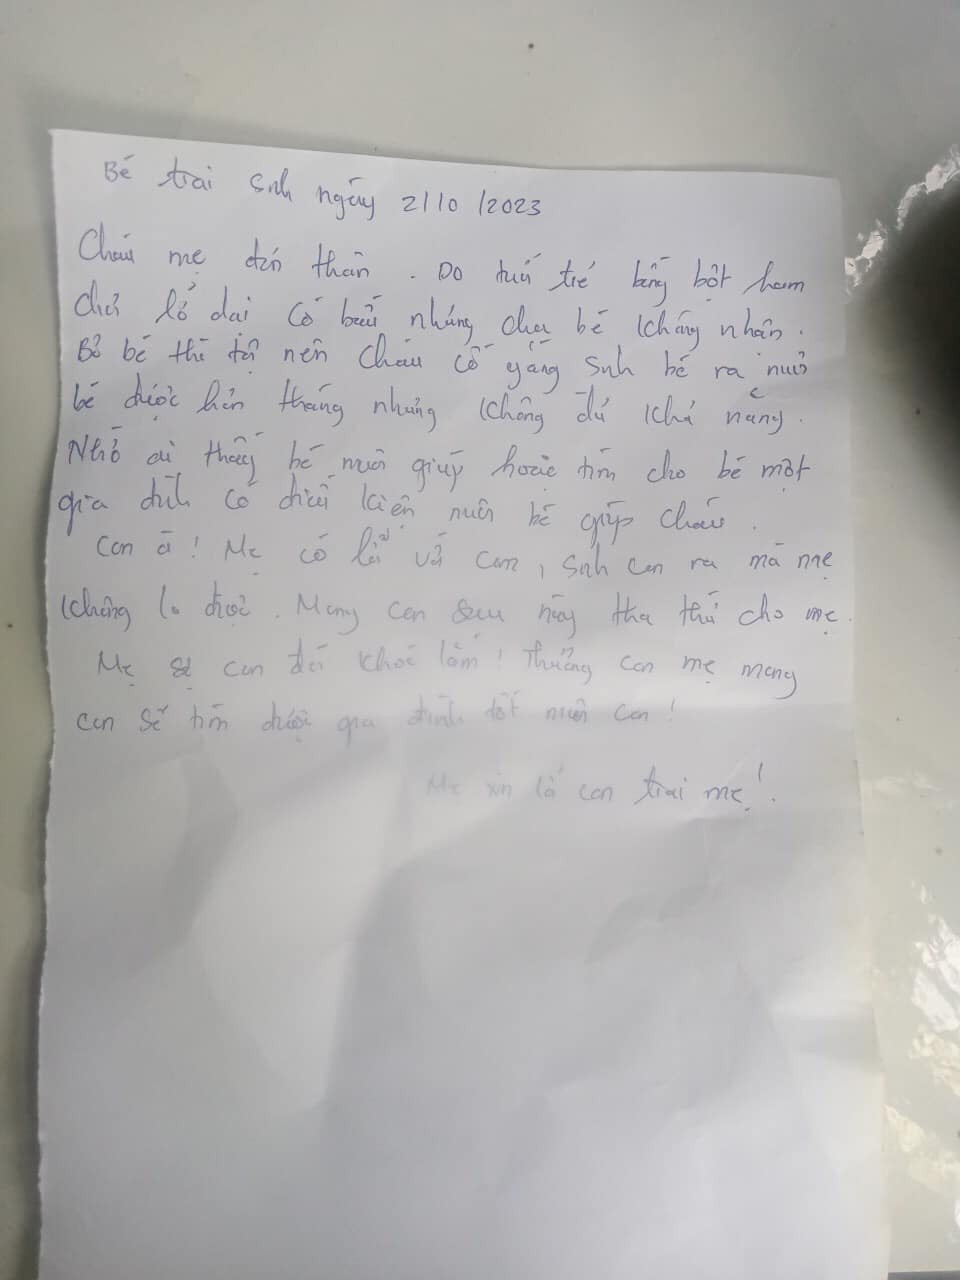 Bé trai sinh ngày 2/10/2023
Cháu mẹ đơn thân. Do tuổi trẻ bồng bột ham
chơi lỡ dại có bầu nhưng cha bé không nhận.
Bỏ bé thì tội nên cháu cố gắng sinh bé ra nuôi
bé được hơn tháng nhưng không đủ khả năng.
Nhờ ai thấy bé nuôi giúp hoặc tìm cho bé một
gia đình có điều kiện nuôi bé giúp cháu.
Con à! Mẹ có lỗi với con, sinh con ra mà mẹ
không lo được. Mong con sau này tha thứ cho mẹ.
Mẹ sợ con đói khóc lắm! Thương con mẹ mong
con sẽ tìm được gia đình tốt nuôi con!
Mẹ xin lỗi con trai mẹ!